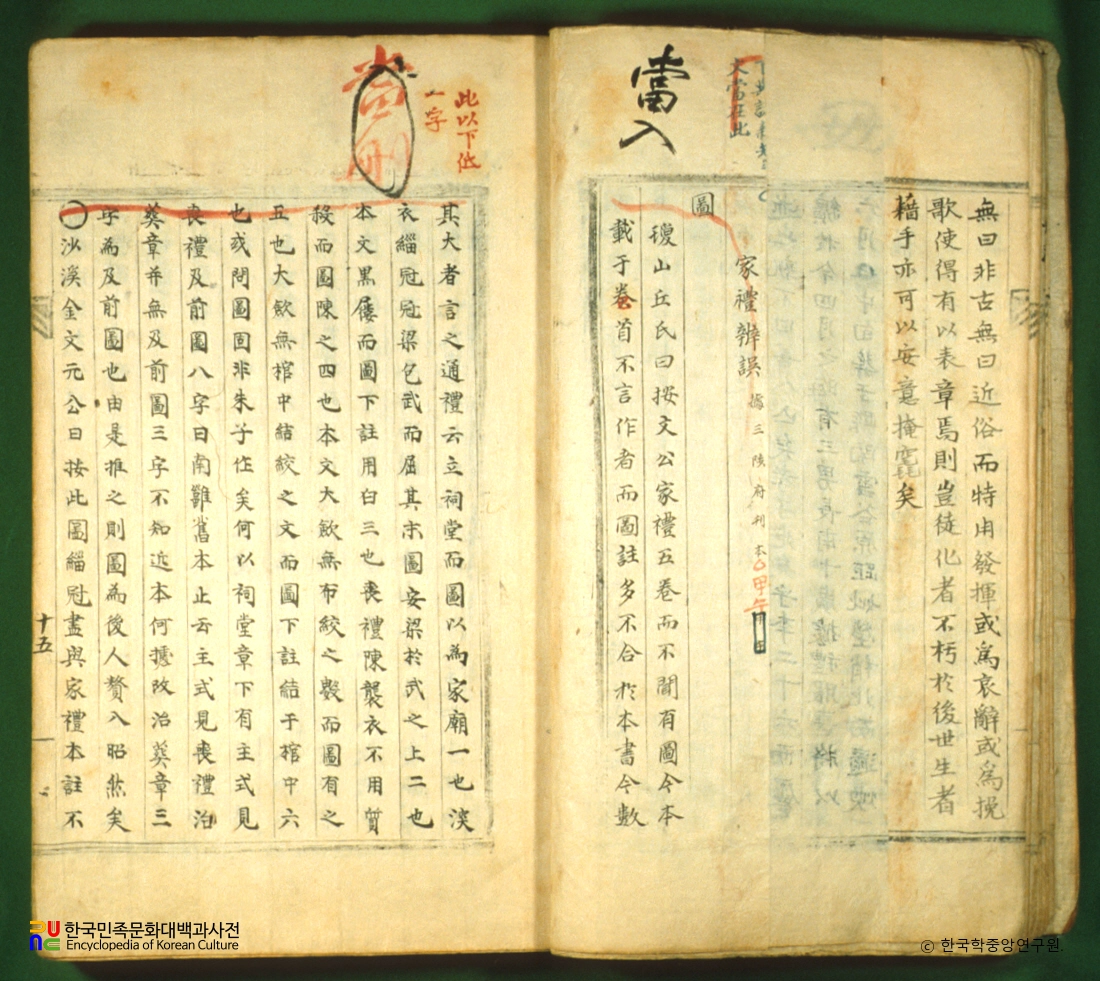 無曰非古無曰近俗而特用發揮或爲哀辭或爲挽
歌使得有以表章焉則豈徒化者不朽於後世生者
藉手亦可以安意掩矣
大當在此
當入
家禮辨誤 據三陟府刊本〇甲午
圖
瓊山丘氏曰按文公家禮五卷而不聞有圖今本
載于卷首不言作者而圖註多不合於本書今數
此以下低
一字
當刪
其大者言之通禮云立祠堂而圖以為家廟一也深
衣緇冠冠梁包武而屈其末圖安梁於武之上二也
本文黑屨而圖下註用白三也喪禮陳襲衣不用質
殺而圖陳之四也本文大歛無布絞之數而圖有之
五也大歛無棺中結絞之文而圖下註結于棺中六
也或問圖固非朱子作矣何以祠堂章下有主式見
喪禮及前圖八字曰南雝舊本止云主式見喪禮治
葬章并無及前圖三字不知近本何據改治葬章三
字為及前圖也由是推之則圖為後人贅入昭然矣
〇沙溪金文元公曰按此圖緇冠盡與家禮本註不
十五
한국민족문화대백과사전
Encyclopedia of Korean Culture
© 한국학중앙연구원.